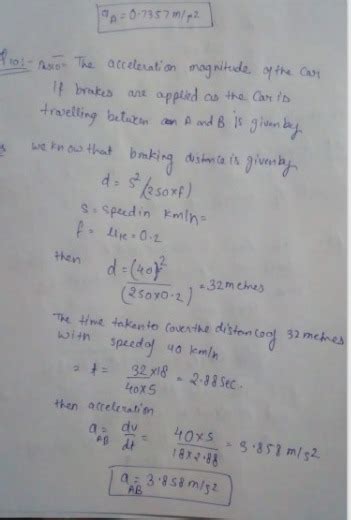 a_A = 0.7357 m/s2
The acceleration magnitude of the car
if brakes are applied as the car is
travelling between A and B is given by
we know that braking distance is given by
d = s^2/(250xf)
s = speed in km/h =
f = μk = 0.2
then
d = (40)^2/(250x0.2) = 32 metres
The time taken to cover the distance of 32 metres
with speed of 40 km/h
= t = 32x18/40x5 = 2.88 sec.
then acceleration
a_AB = dv/dt = 40x5/18x2.88 = 3.858 m/s2
a_AB = 3.858 m/s2